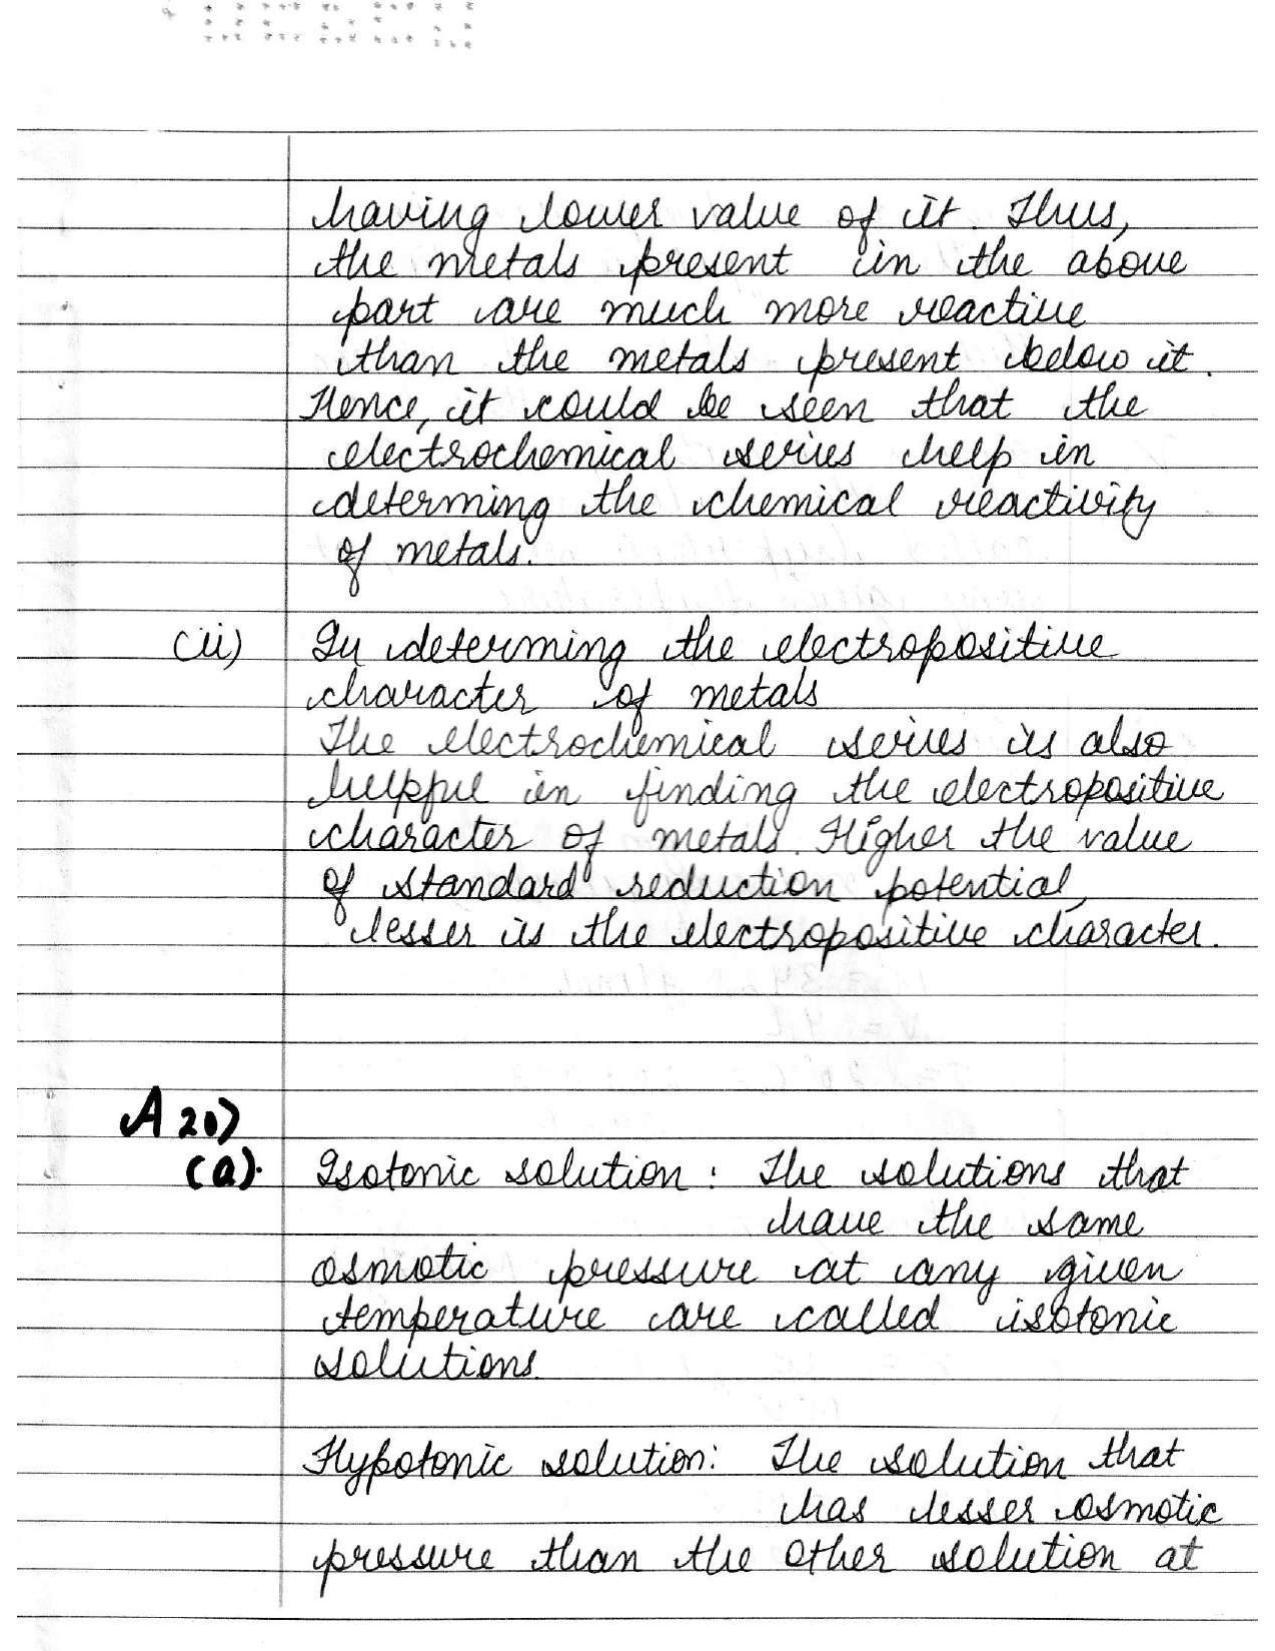 having lower value of it. Thus,
the metals present in the above
part are much more reactive
than the metals present below it.
Hence, it could be seen that the
electrochemical series help in
determining the chemical reactivity
of metals.
(ii) In determining the electropositive
character of metals
The electrochemical series is also
helpful in finding the electropositive
character of metals. Higher the value
of standard reduction potential,
lesser is the electropositive character.
A 20)
(a). Isotonic solution : The solutions that
have the same
osmotic pressure at any given
temperature are called isotonic
solutions.
Hypotonic solution: The solution that
has lesser osmotic
pressure than the other solution at